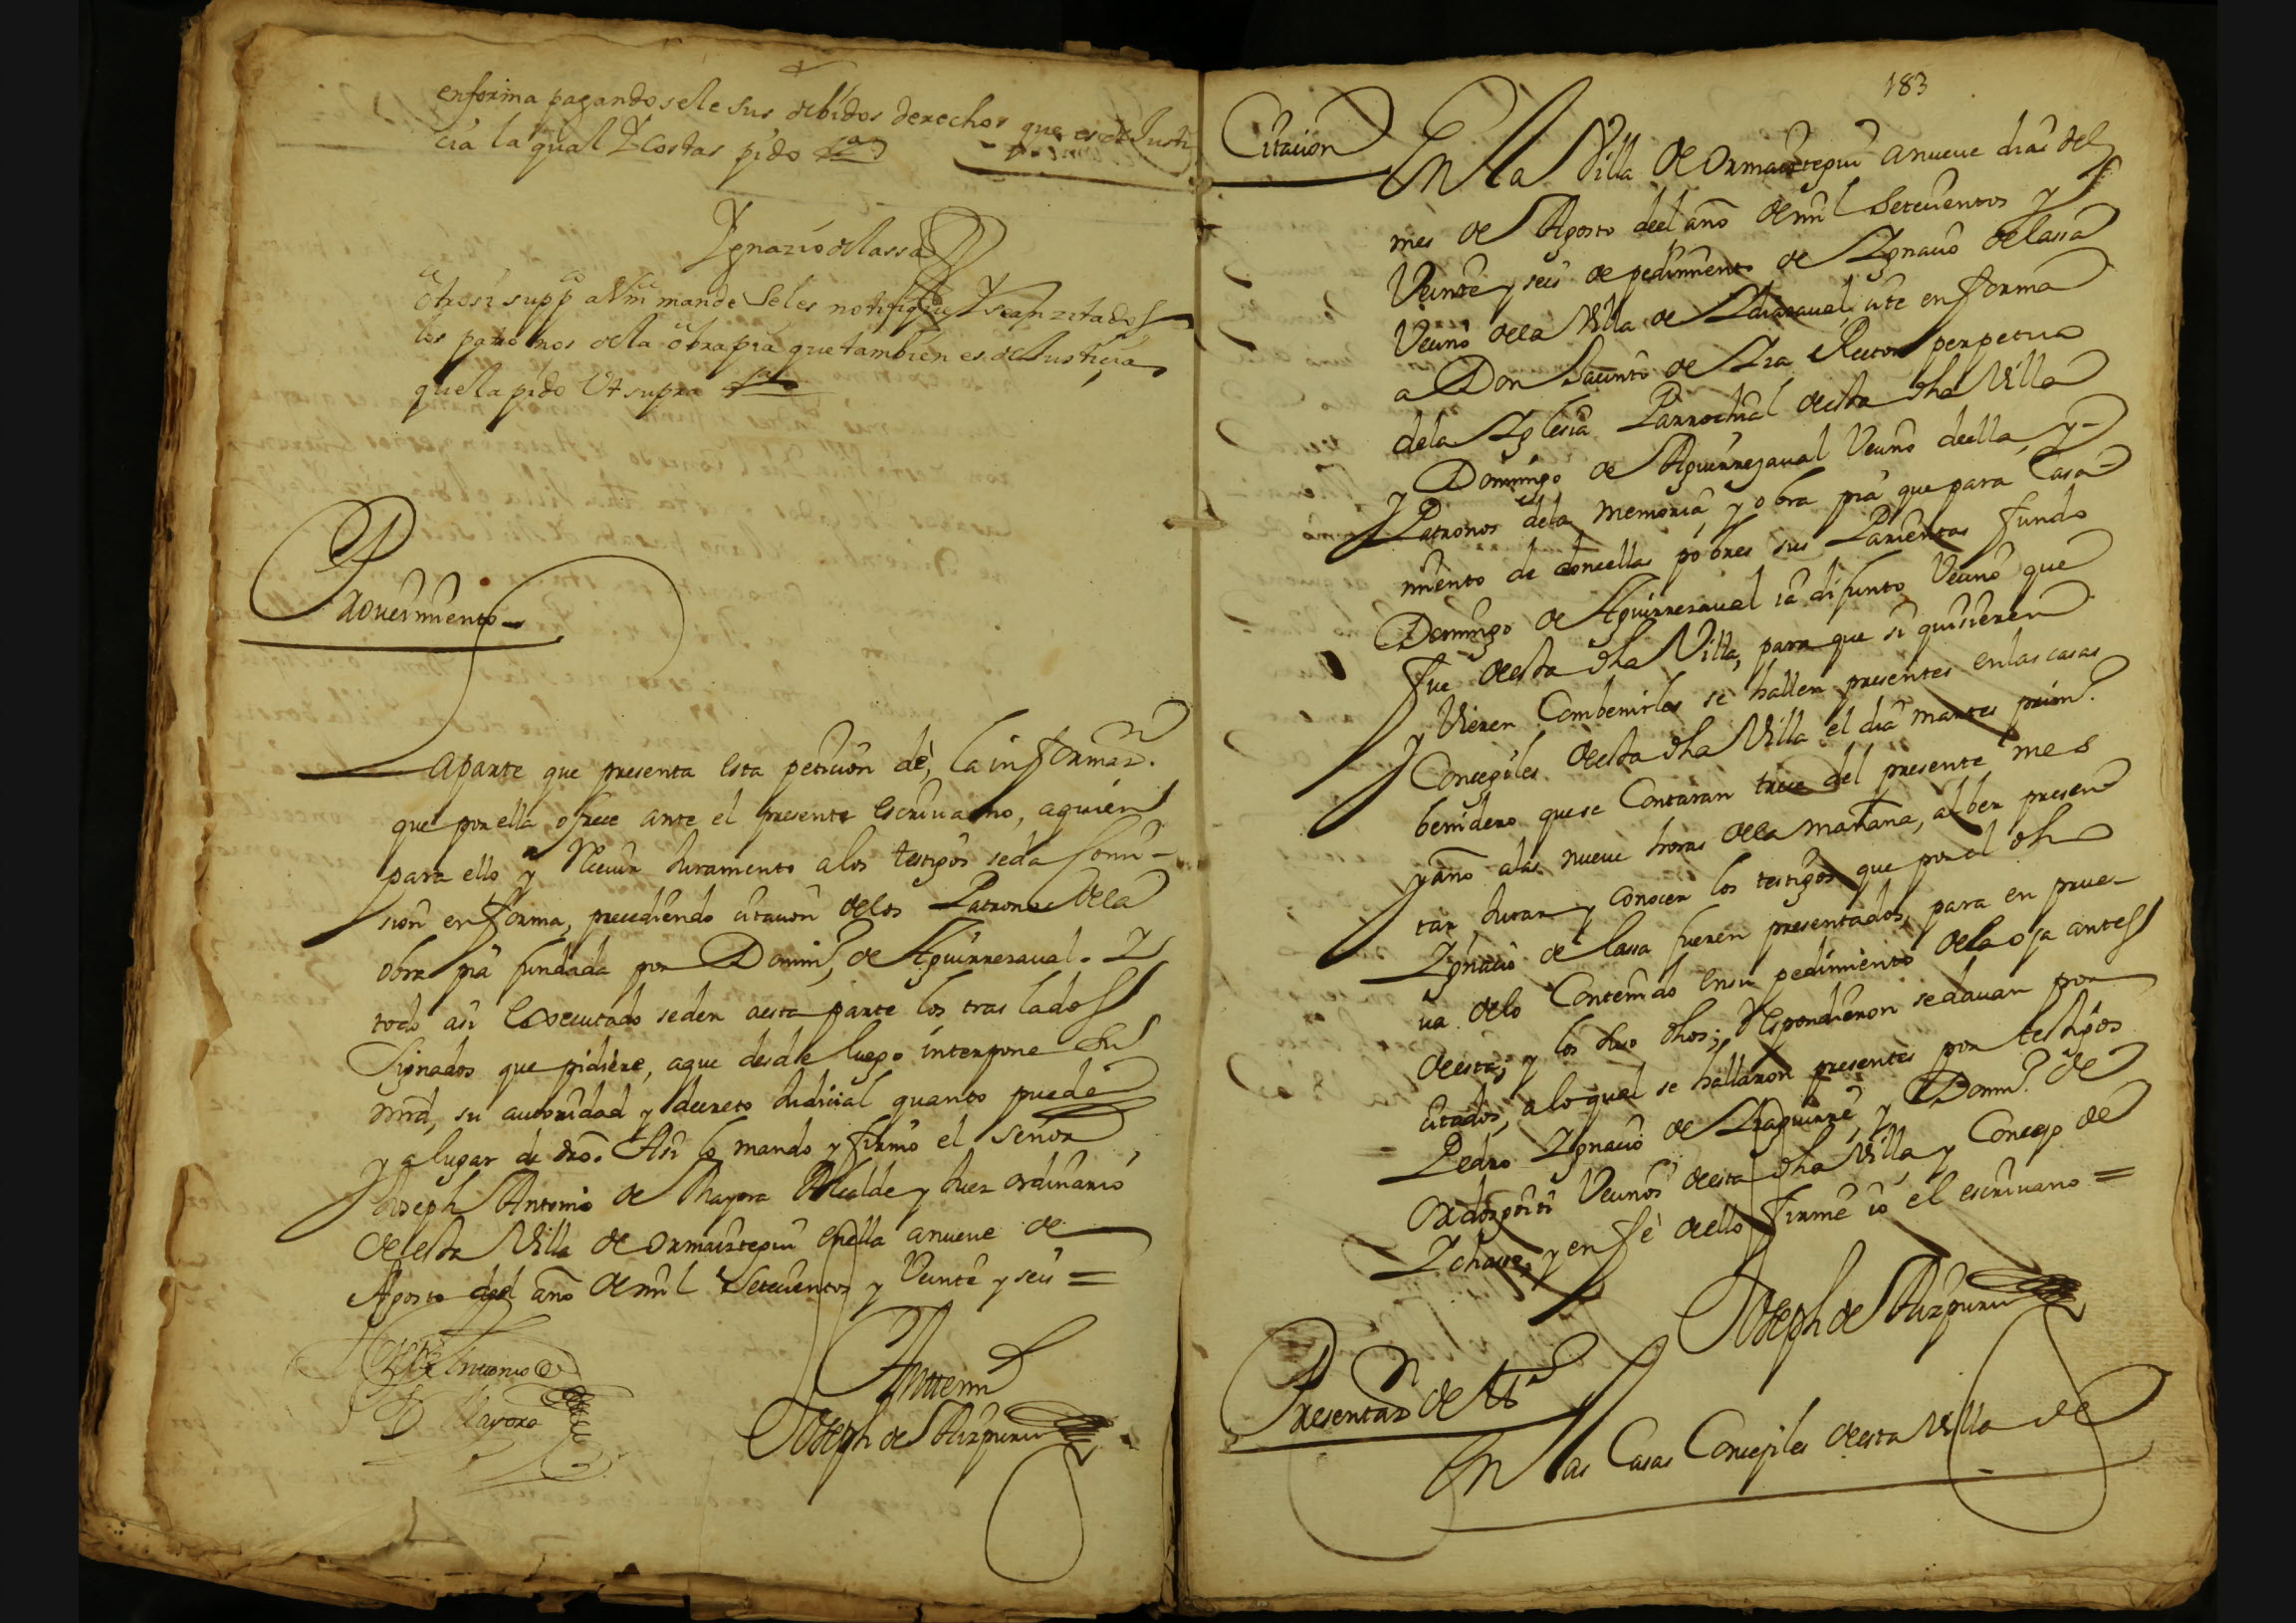 enforma pagandosele sus debidos derechos que es de Justi
cia la qual Y costas pido
Ygnazio de lassa
otrosi supp.co a Vm mande Seles notifique Y sean zitados
los patronos de la obra pia que tambien es de Justicia
que la pido Ut supra
Proveimiento
La parte que presenta esta peticion dè, la informaz.n
que por ella ofrece ante el presente escrivano, aquien
para ello y Recivir Juramento a los testigos seda Comi-
sion en forma, precediendo citacion delos Patronos dela
obra pia fundada por Domin.o de Aguirrezaval. Y
todo asi Executado seden aesta parte los traslados
Signados que pidiere, aque desde luego interpone Su
mrd, su autoridad y decreto Judicial quanto puede
y a lugar de dro. Asi lo mando y firmo el Señor
Joseph Antonio de Mayora Alcalde y Juez ordinario
de esta Villa de Ormaiztegui en ella a nueve de
Agosto del año de mil Setecientos y Veinte y seis =
Joseph Antonio de
Mayora
Ante mi
Joseph de Aizpuru
183
Citacion
En la Villa de Ormaiztegui a nueve dias del
mes de Agosto deel año de mil Setecientos y
Veinte y seis de pedimiento de Ygnacio de lassa
Vecino dela Villa de Ydiazaval, cite en forma
a Don Jacinto de Yza Rector perpetuo
dela Yglesia Parrochial de esta dha Villa
y Domingo de Aguirrezaval Vecino deella, y-
Patronos dela memoria y obra pia que para Casa-
miento de doncellas pobres sus Parientas fundo
Domingo de Aguirrezaval ia difunto Vecino que
fue de esta dha Villa, para que si quisieren
y Vieren Combenirles se hallen presentes en las casas
Concegiles de esta dha Villa el dia martes prim.o
benidero que se Contaran trece del presente mes
y año alas nueve horas dela mañana, alber presen-
tar, Jurar y Conocer los testigos que por el dho
Ygnacio de lassa fueren presentados, para en prue-
va delo Contenido en su pedimiento dela oja antes
de esta; y los dhos, Respondieron sedavan por
citados, alo qual se hallaron presentes por testigos
Pedro Ygnacio de Yzaguirre, y Domin.o de
Vecinos de esta dha Villa y Concejo de
Ychaso, y en fè de ello firme io el escrivano =
Joseph de Aizpuru
Presentaz.n de tt.o
En las Casas Concegiles de esta Villa de